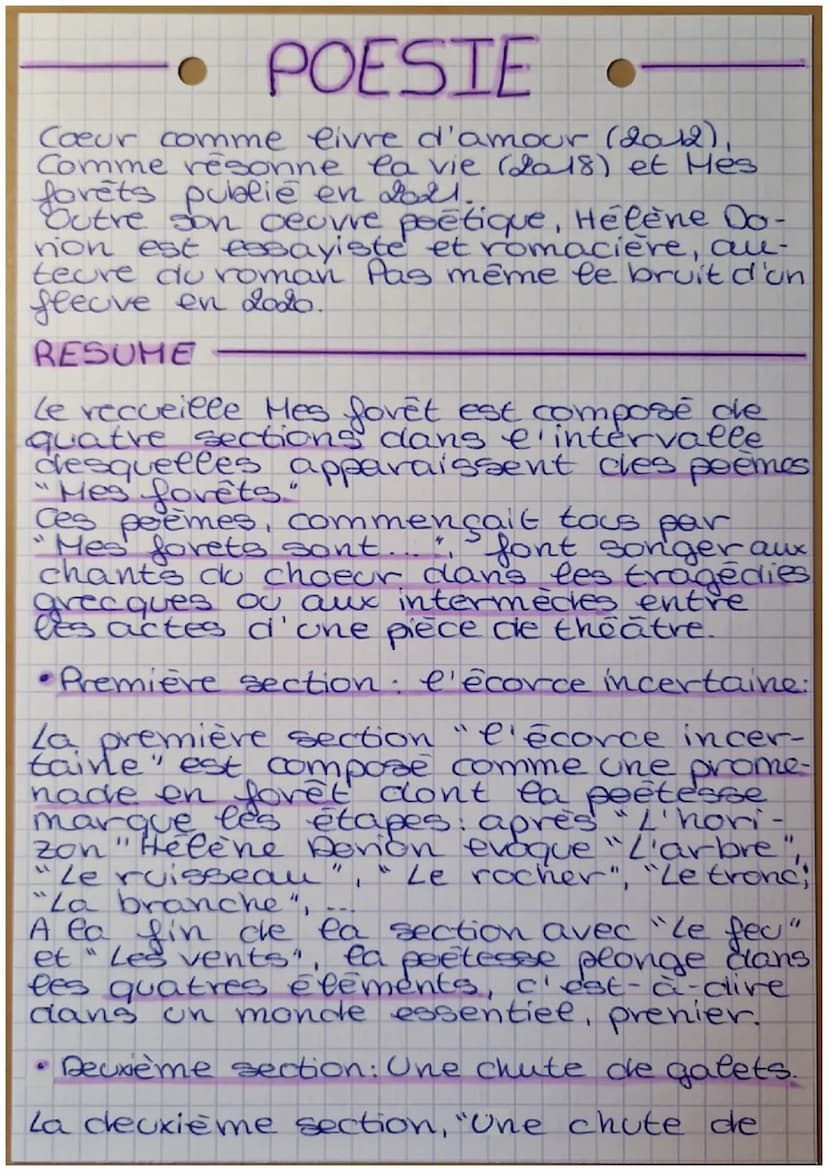 POESIE
Coeur comme livre d'amour (2012),
Comme résonne la vie (2018) et Mes
forêts publié en 2021.
Outre son oeuvre poétique, Hélène Do-
rion est essayiste et romacière, au-
teure du roman Pas même le bruit d'un
fleuve en 2020.
RESUME
Le recueille Mes forêt est composé de
quatre sections dans l'intervalle
desquelles apparaissent des poèmes
"Mes forêts."
Ces poèmes, commençait tous par
"Mes forets sont...", font songer aux
chants du choeur dans les tragédies
grecques ou aux intermèdes entre
les actes d'une pièce de théâtre.
• Première section : l'écorce incertaine:
La première section "l'écorce incer-
taine" est composé comme une prome-
nade en forêt dont la poètesse
marque les étapes : après "L'hori-
zon" Hélène Dorion evoque "L'arbre",
"Le ruisseau", "Le rocher", "Le tronc",
"La branche", ...
A la fin de la section avec "Le feu"
et "Les vents", la poètesse plonge dans
les quatres éléments, c'est-à-dire
dans un monde essentiel, prenier.
• Deuxième section : Une chute de galets.
La deuxième section, "Une chute de